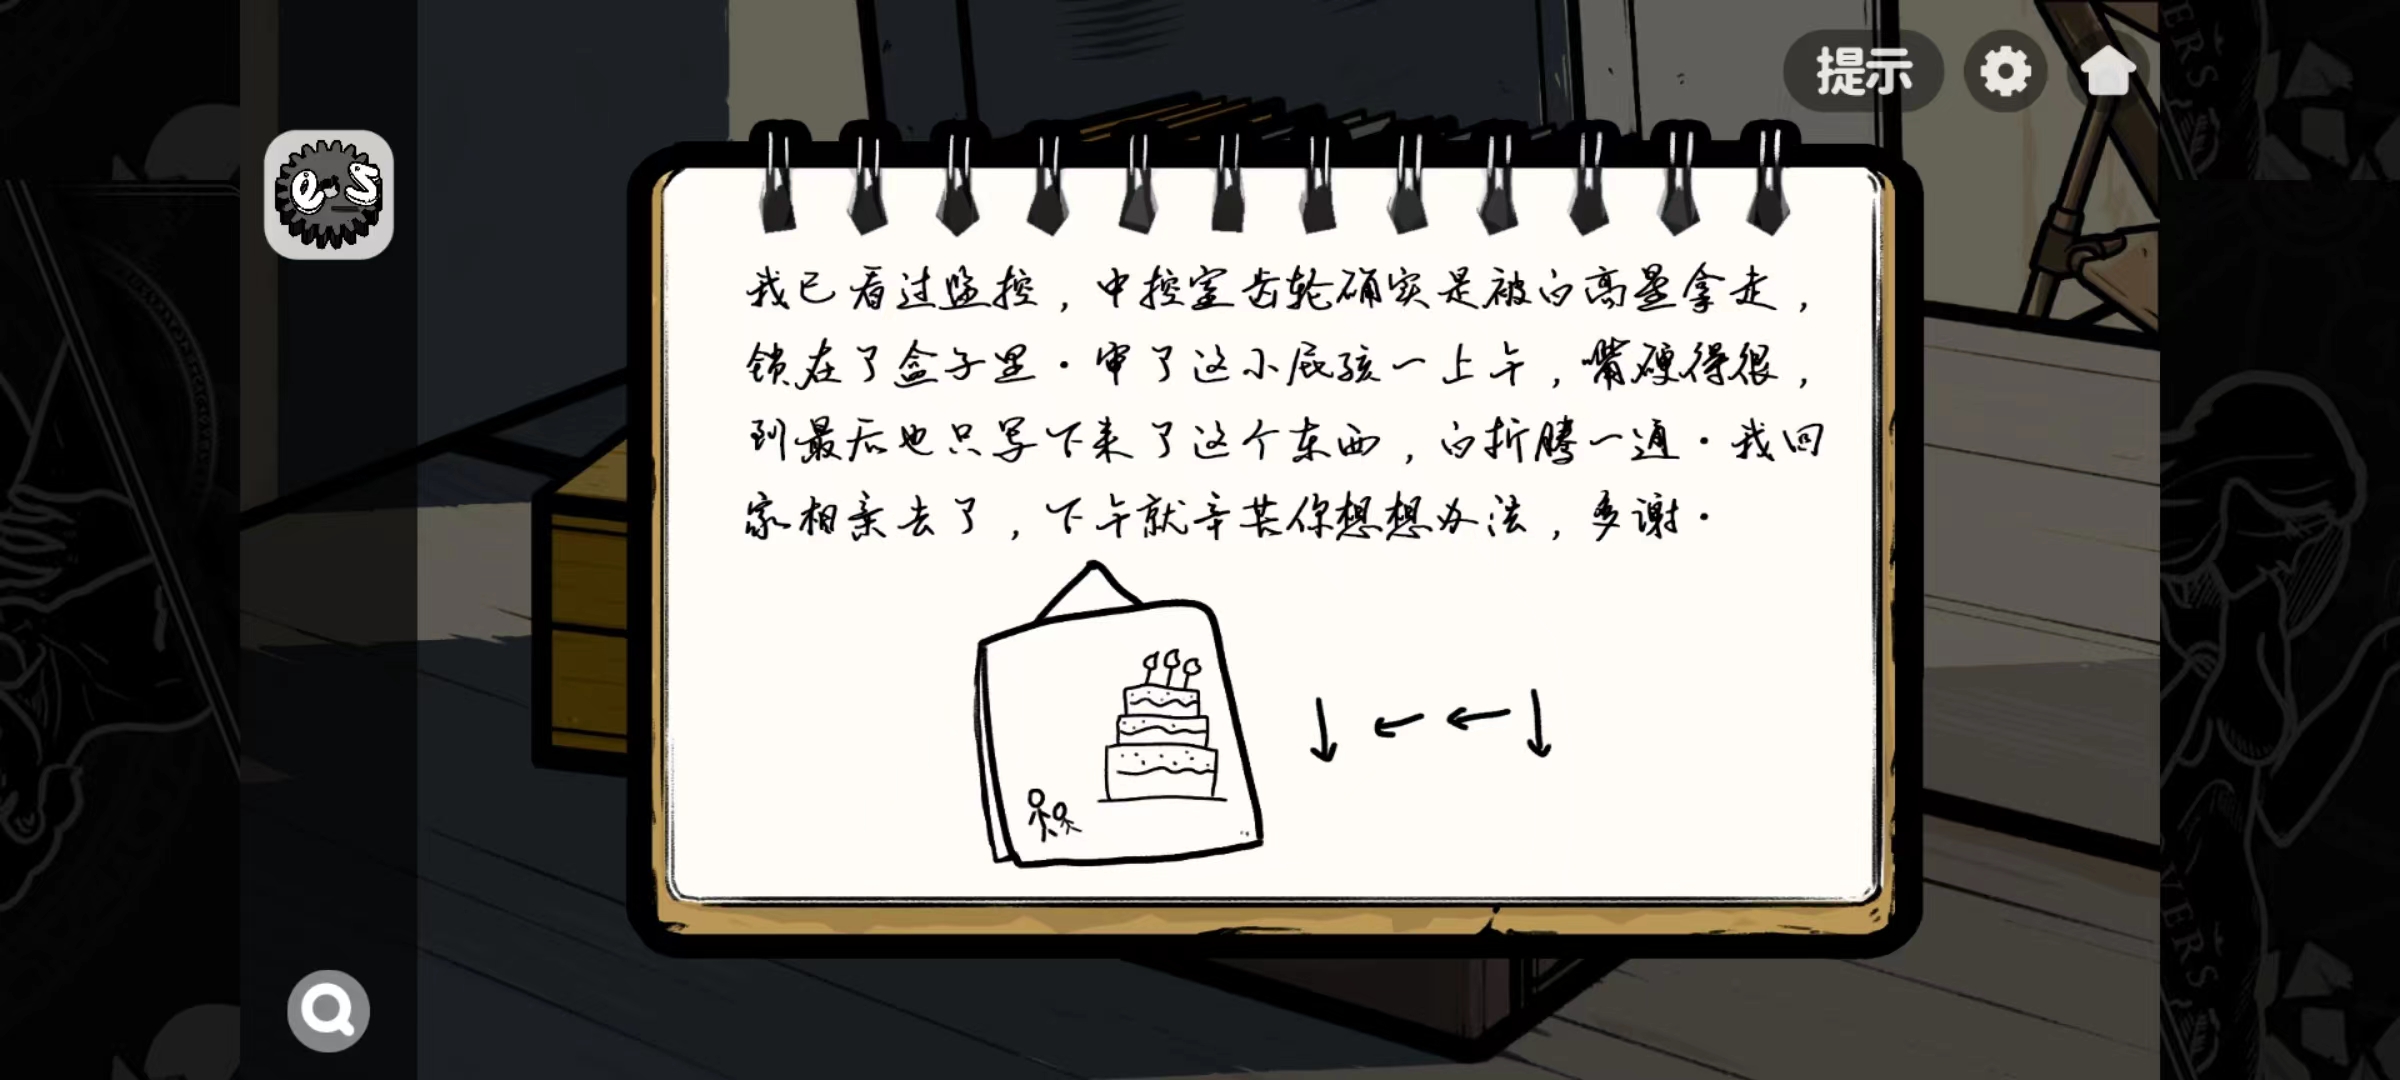 提示
我已看过监控，中控室齿轮确实是被白高星拿走，
锁在了盒子里.审了这小屁孩一上午，嘴硬得很，
到最后也只写下来了这个东西，白折腾一通.我回
家相亲去了，下午就辛苦你想想办法，多谢.